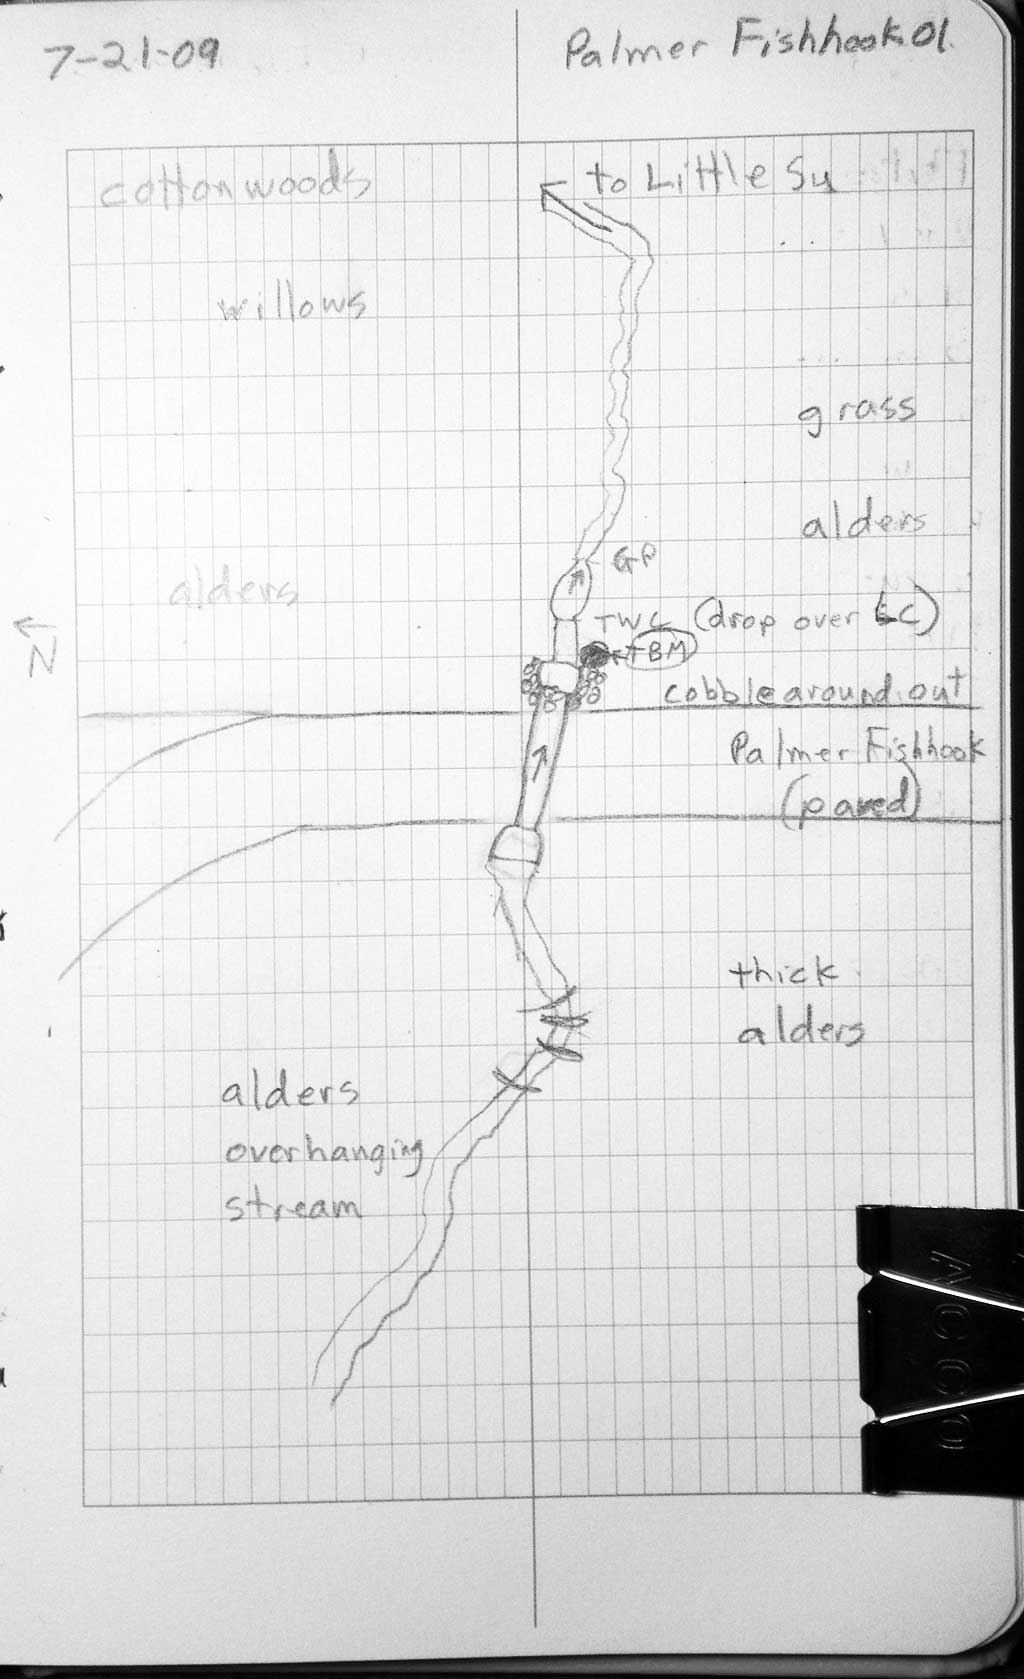 7-21-09
Palmer Fishhook 01
cottonwoods
to Little Su
willows
grass
alders
GP
alders
TWC (drop over LC)
N
TBM
cobble around out
Palmer Fishhook
(paved)
thick
alders
alders
overhanging
stream
ACCO